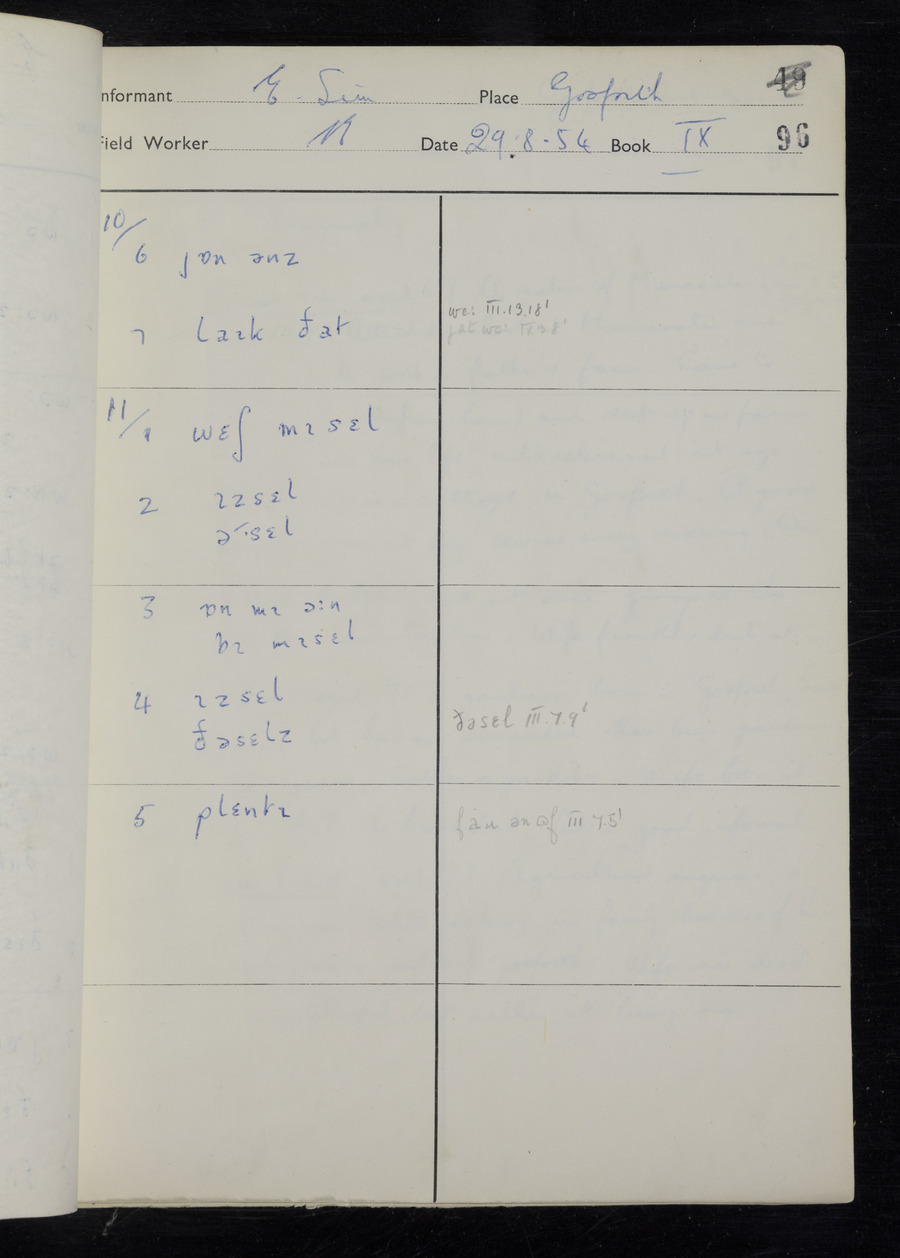 nformant E. Sim Place Gosforth 49
Field Worker N Date 29.8.54 Book IX 96
10/
6 jɒn ənz
7 laɪk ðat
wɛ: III.13.18'
11/1 wɛʃ mɪsɛl
2 ɪzsɛl
ə˞·sɛl
3 ɒn mɪ ə:n
bɪ mɪsɛl
4 ɪzsɛl
ðəsɛlz
ðəsɛl III.7.9'
5 plɛntɪ
III 7.5'